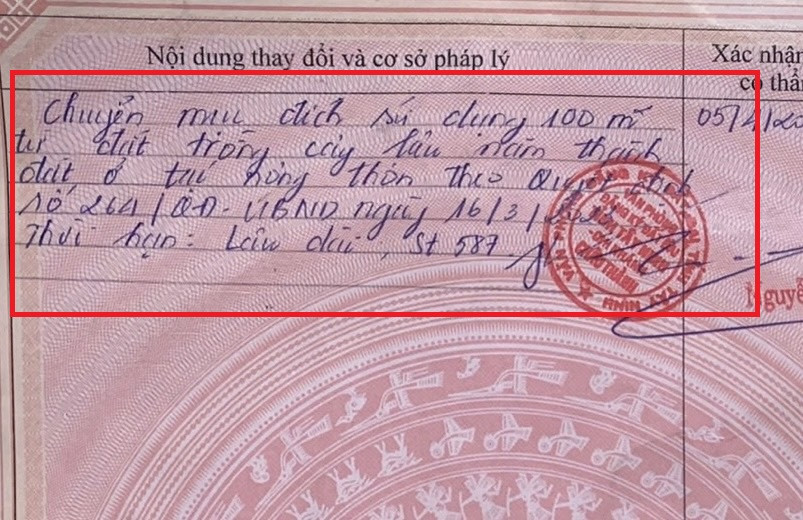 Nội dung thay đổi và cơ sở pháp lý
Xác nhận
có thẩ
Chuyển mục đích sử dụng 100 m²
05/4/20
từ đất trồng cây lâu năm thành
đất ở tại nông thôn theo Quyết định
số 264/QĐ-UBND ngày 16/3/
Thời hạn: Lâu dài, St 587.
Nguyễ